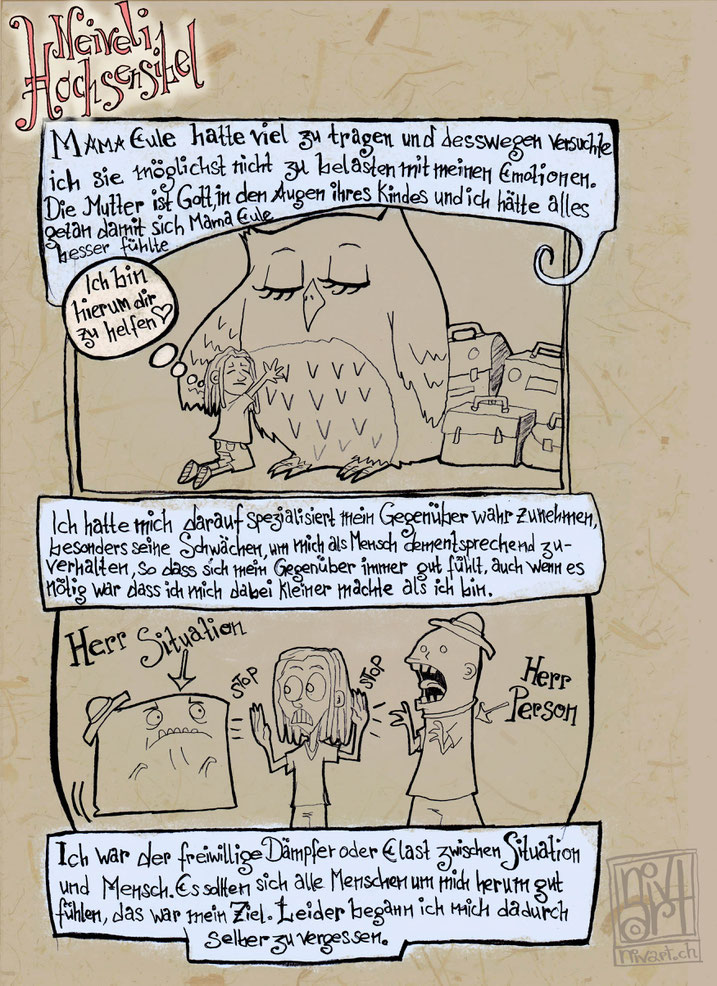 Neiveli
Hochsensibel
MAMA Eule hatte viel zu tragen und desswegen versuchte
ich sie möglichst nicht zu belasten mit meinen Emotionen.
Die Mutter ist Gott, in den Augen ihres Kindes und ich hätte alles
getan damit sich Mama Eule
besser fühlte
Ich bin
hier um dir
zu helfen ♡
Ich hatte mich darauf spezialisiert mein Gegenüber wahr zunehmen,
besonders seine Schwächen, um mich als Mensch dementsprechend zu-
verhalten, so dass sich mein Gegenüber immer gut fühlt, auch wenn es
nötig war dass ich mich dabei kleiner machte als ich bin.
Herr Situation
STOP
STOP
Herr
Person
Ich war der freiwillige Dämpfer oder Elast zwischen Situation
und Mensch. Es sollten sich alle Menschen um mich herum gut
fühlen, das war mein Ziel. Leider begann ich mich dadurch
selber zu vergessen.
niv
art
nivart.ch